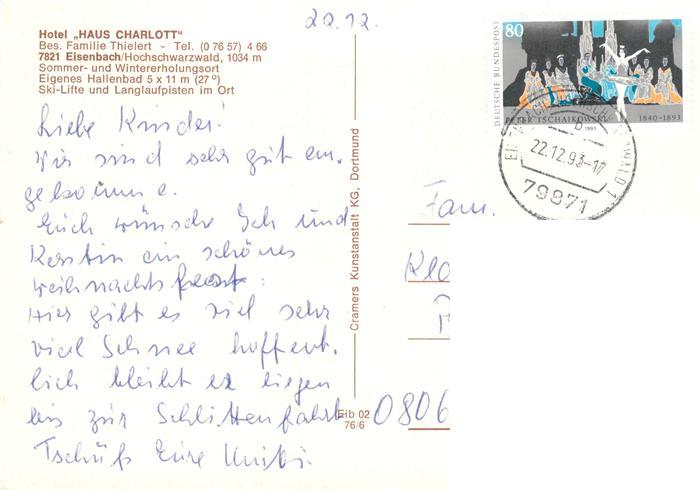 22.12.
Hotel „HAUS CHARLOTT“
Bes. Familie Thielert - Tel. (0 76 57) 4 66
7821 Eisenbach/Hochschwarzwald, 1034 m
Sommer- und Wintererholungsort
Eigenes Hallenbad 5 x 11 m (27°)
Ski-Lifte und Langlaufpisten im Ort
Liebe Kinder!
Wir sind sehr gut an-
gekomme.
Euch wünsche Ich und
Kerstin ein schönes
weihnachtsfest.
Hier gibt es viel sehr
viel Schnee hoffent-
lich bleibt er liegen
bis zur Schlittenfahrt
Tschüß Eure
Cramers Kunstanstalt KG, Dortmund
Eib 02
76/6
80
DEUTSCHE BUNDESPOST
PETER TSCHAIKOWSKI
1840-1893
1993
b
22.12.93-17
79871
Fam.
0806